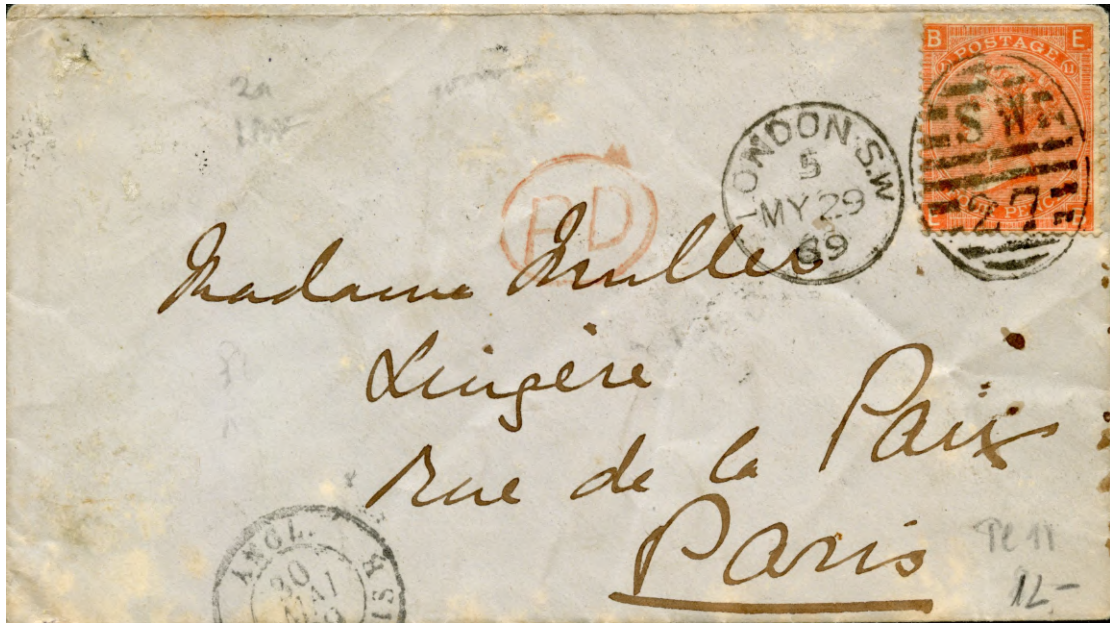 B E
POSTAGE
E B
SW
27
LONDON·S.W
5
MY 29
69
PD
Madame Muller
Lingère
Rue de la Paix
Paris
ANGL.
30
MAI
Pl 11
12-